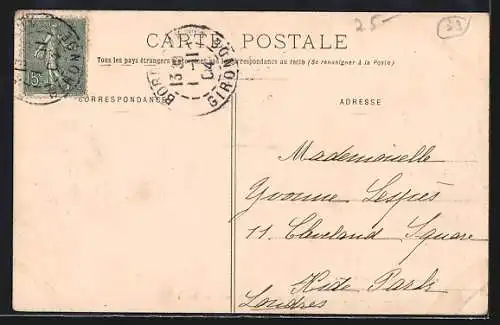 25-
33
CARTE POSTALE
Tous les pays étrangers correspondance au recto (de renseigner à la Poste)
CORRESPONDANCE
ADRESSE
15c
BORD
GIRONDE
Mademoiselle
Yvonne Lespès
11 Cleveland Square
Hide Park
Londres